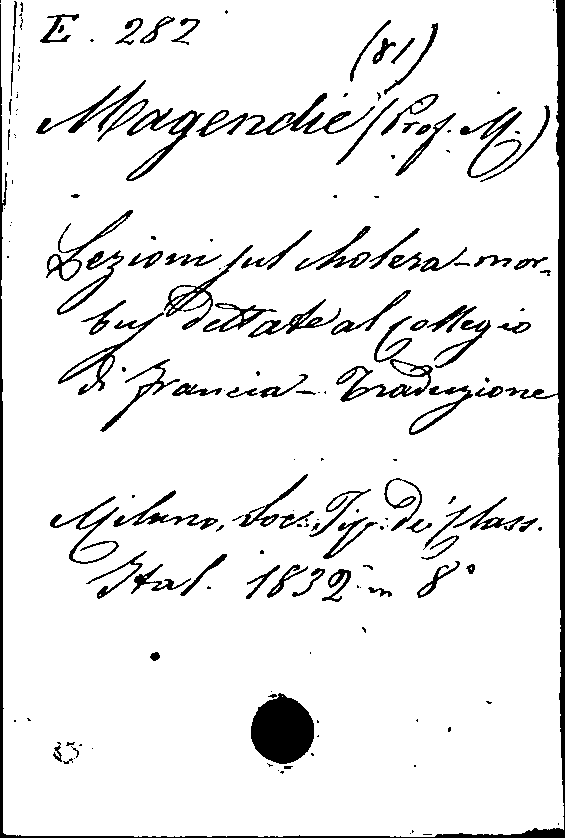 E. 282
(81)
Magendie (Prof. M.)
Lezioni sul cholera-mor-
bus dettate al collegio
di Francia - Traduzione
Milano, Soc. Tip. de' Class.
Ital. 1832 in 8°